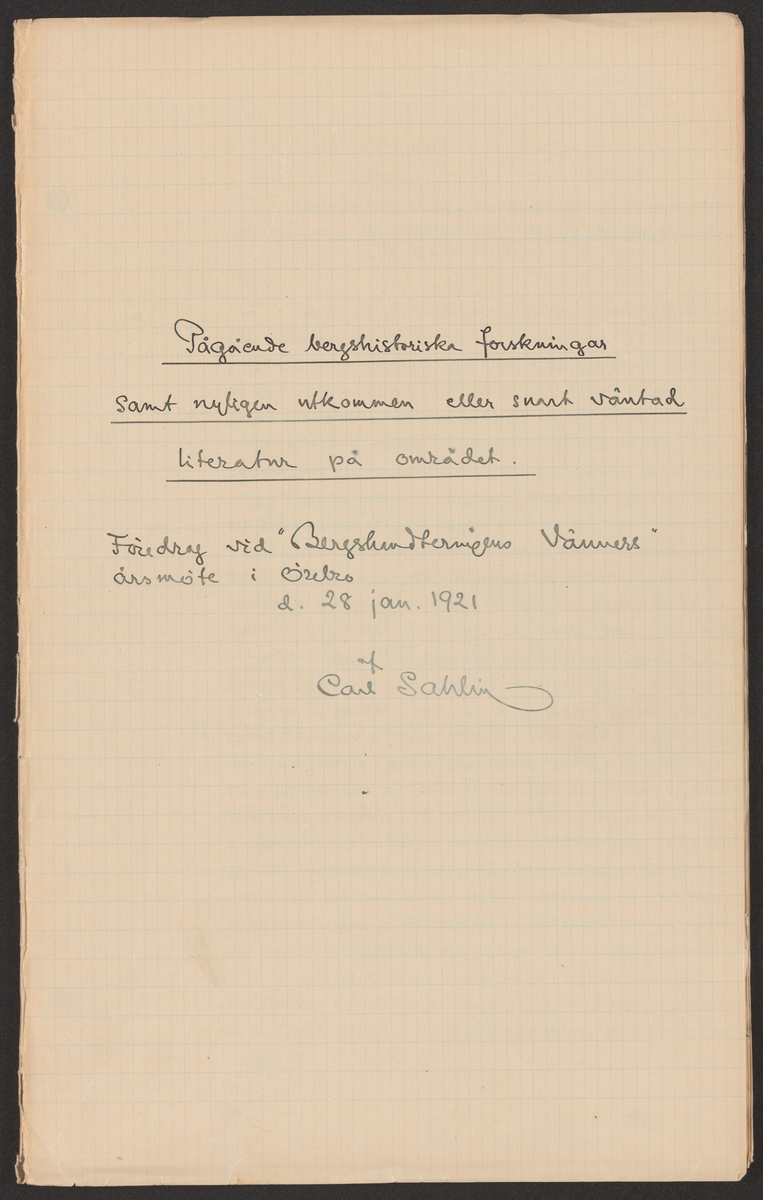 Pågående bergshistoriska forskningar
samt nyligen utkommen eller snart väntad
literatur på området.
Föredrag vid "Bergshandteringens Vänners"
årsmöte i Örebro
d. 28 jan. 1921
af
Carl Sahlin